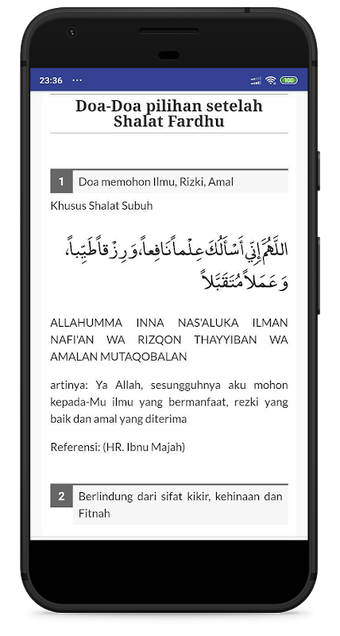 23:36 ...
100
Doa-Doa pilihan setelah
Shalat Fardhu
1 Doa memohon Ilmu, Rizki, Amal
Khusus Shalat Subuh
اللَّهُمَّ إِنِّي أَسْأَلُكَ عِلْماً نَافِعاً، وَرِزْقاً طَيِّباً،
وَعَمَلاً مُتَقَبَّلاً
ALLAHUMMA INNA NAS'ALUKA ILMAN
NAFI'AN WA RIZQON THAYYIBAN WA
AMALAN MUTAQOBALAN
artinya: Ya Allah, sesungguhnya aku mohon
kepada-Mu ilmu yang bermanfaat, rezki yang
baik dan amal yang diterima
Referensi: (HR. Ibnu Majah)
2 Berlindung dari sifat kikir, kehinaan dan
Fitnah